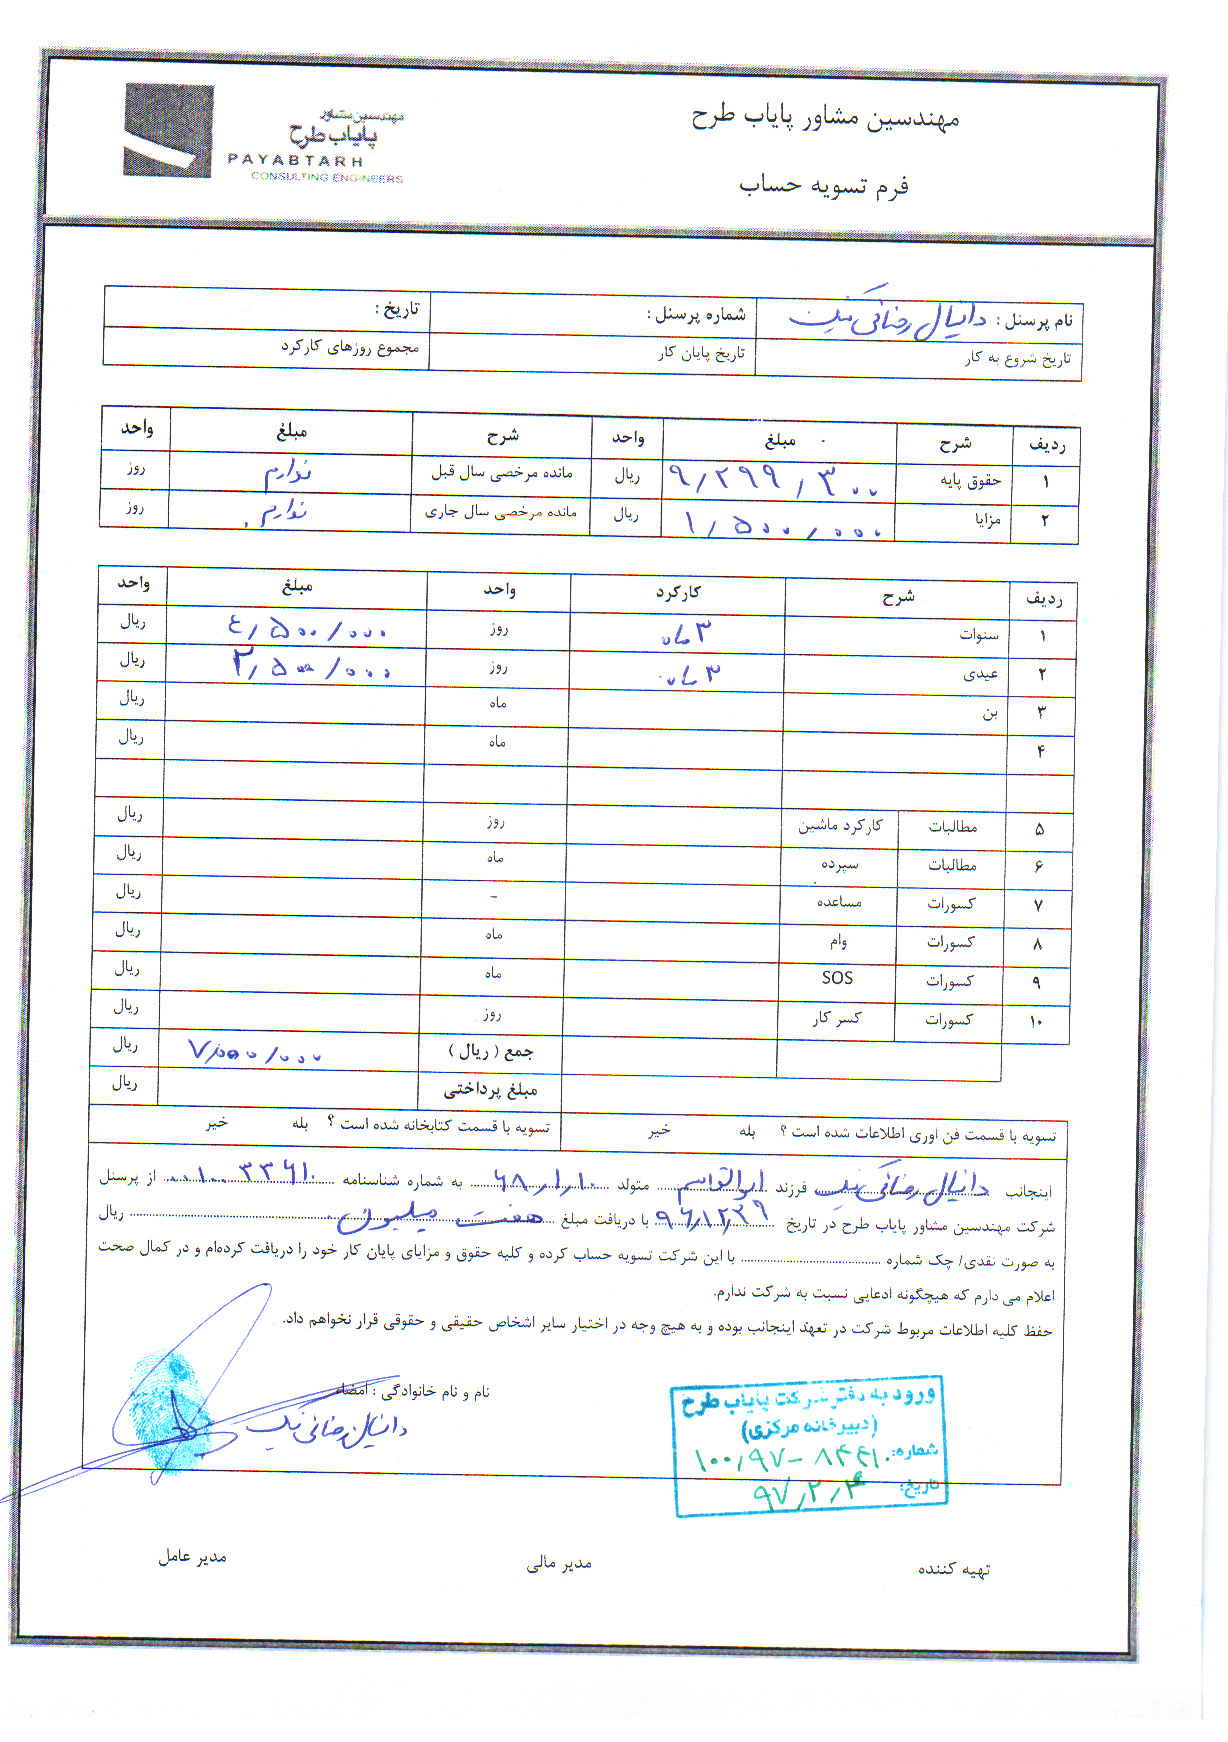 مهندسین مشاور پایاب طرح
فرم تسویه حساب
مهندسین مشاور
پایاب طرح
PAYABTARH
CONSULTING ENGINEERS
نام پرسنل : دانیال رضائی نیک شماره پرسنل : تاریخ :
تاریخ شروع به کار تاریخ پایان کار مجموع روزهای کارکرد
ردیف شرح مبلغ واحد شرح مبلغ واحد
۱ حقوق پایه ۹/۲۹۹/۳۰۰ ریال مانده مرخصی سال قبل ندارم روز
۲ مزایا ۱/۵۰۰/۰۰۰ ریال مانده مرخصی سال جاری ندارم. روز
ردیف شرح کارکرد واحد مبلغ واحد
۱ سنوات ۳ ماه روز ۴/۵۰۰/۰۰۰ ریال
۲ عیدی ۳ ماه روز ۲/۵۰۰/۰۰۰ ریال
۳ بن ماه ریال
۴ ماه ریال
۵ مطالبات کارکرد ماشین روز ریال
۶ مطالبات سپرده ماه ریال
۷ کسورات مساعده - ریال
۸ کسورات وام ماه ریال
۹ کسورات SOS ماه ریال
۱۰ کسورات کسر کار روز ریال
جمع ( ریال ) ۷/۰۰۰/۰۰۰ ریال
مبلغ پرداختی ریال
تسویه با قسمت فن اوری اطلاعات شده است ؟ بله خیر تسویه با قسمت کتابخانه شده است ؟ بله خیر
اینجانب دانیال رضائی نیک فرزند ابوالقاسم متولد ۶۸/۱/۱۰ به شماره شناسنامه از پرسنل
شرکت مهندسین مشاور پایاب طرح در تاریخ ۹۶/۱۲/۲۹ با دریافت مبلغ هفت میلیون ریال
به صورت نقدی/ چک شماره با این شرکت تسویه حساب کرده و کلیه حقوق و مزایای پایان کار خود را دریافت کرده‌ام و در کمال صحت
اعلام می دارم که هیچگونه ادعایی نسبت به شرکت ندارم.
حفظ کلیه اطلاعات مربوط شرکت در تعهد اینجانب بوده و به هیچ وجه در اختیار سایر اشخاص حقیقی و حقوقی قرار نخواهم داد.
نام و نام خانوادگی : امضاء
دانیال رضائی نیک
ورود به دفتر شرکت پایاب طرح
(دبیرخانه مرکزی)
شماره: ۱۰۰/۹۷-۸۴۴۱
تاریخ: ۹۷/۲/۴
تهیه کننده مدیر مالی مدیر عامل